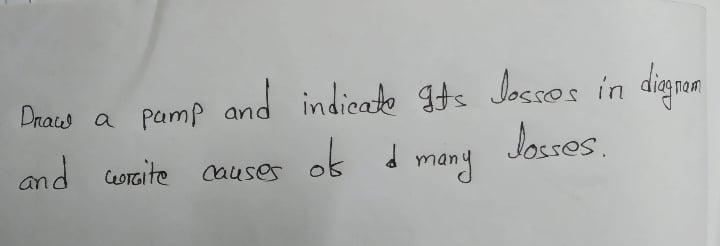 Draw a pump and indicate Its losses in diagram
and write causes of many losses.